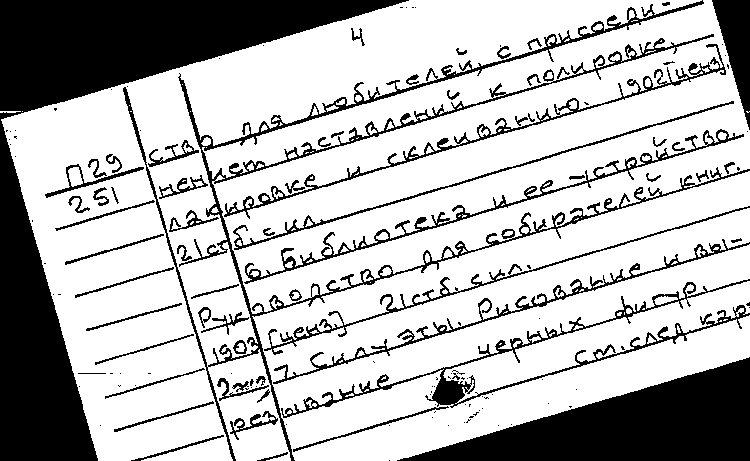 4
П29
251
ство для любителей, с присоеди-
нением наставлений к полировке,
лакировке и склеиванию. 1902[ценз]
21стб. с ил.
6. Библиотека и ее устройство.
Руководство для собирателей книг.
1903 [ценз.] 21стб. с ил.
7. Силуэты. Рисование и вы-
резывание черных фигур.
см. след. карт